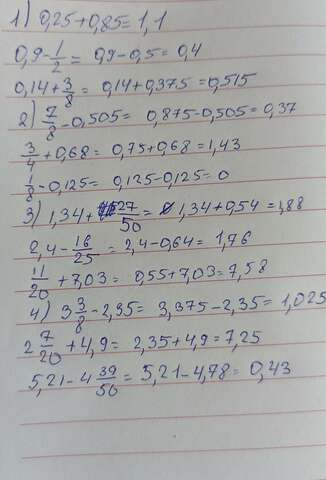 1) 0,25+0,85= 1,1
0,9-1/2= 0,9-0,5= 0,4
0,14+3/8= 0,14+0,375=0,515
2) 7/8-0,505= 0,875-0,505=0,37
3/4+0,68= 0,75+0,68=1,43
1/8-0,125= 0,125-0,125=0
3) 1,34+27/50= 1,34+0,54=1,88
2,4-16/25=2,4-0,64=1,76
11/20+7,03= 0,55+7,03=7,58
4) 3 3/8-2,35= 3,375-2,35=1,025
2 7/20+4,9= 2,35+4,9=7,25
5,21-4 39/50= 5,21-4,78= 0,43